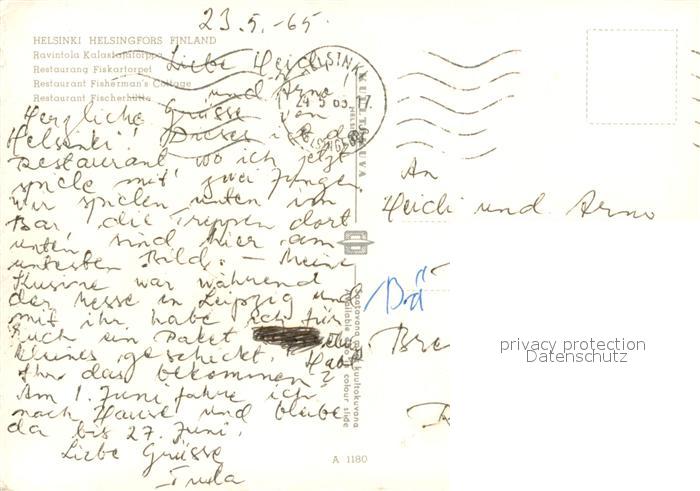 23.5.-65.
HELSINKI HELSINGFORS FINLAND
Ravintola Kalastajatorppa
Restaurang Fiskartorpet
Restaurant Fisherman's Cottage
Restaurant Fischerhütte
Liebe Heidi
und Arno!
Herzliche Grüsse von
Helsinki! Dieses ist das
Restaurant wo ich jetzt
spiele mit zwei Jungen
wir spielen unten im
Bar, die Treppen dort
unten sind hier am
untersten Bild. – Meine
Kusine war während
der Messe in Leipzig und
mit ihr habe ich für
Euch ein Paket
kleines geschickt. Habt
Ihr das bekommen?
Am 1 Juni fahre ich
nach Hause und bleibe
da bis 27. Juni.
Liebe Grüsse
Tuula
HELSINKI
HELSINGFORS
KUULTOKUVA
Saatavana myös kuultokuvana
Available also as colour slide
A 1180
An
Heidi und Arno
Bä
Bre
privacy protection
Datenschutz